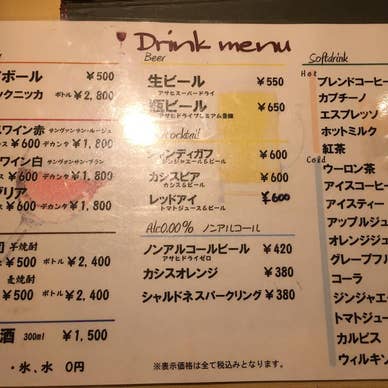 Drink menu
ボール ¥500
ックニッカ ボトル ¥2,800
ワイン赤 サンヴァンサン・ルージュ
¥600 デカンタ ¥1,800
ワイン白 サンヴァンサン・ブラン
¥600 デカンタ ¥1,800
グリア
¥600 デカンタ ¥1,800
芋焼酎
¥500 ボトル ¥2,400
麦焼酎
¥500 ボトル ¥2,400
酒 300ml ¥1,500
・氷、水 0円
Beer
生ビール ¥550
アサヒスーパードライ
瓶ビール ¥650
アサヒドライプレミアム豊醸
cocktail
シャンディガフ ¥600
ジンジャエール&ビール
カシスビア ¥600
カシス&ビール
レッドアイ ¥600
トマトジュース&ビール
Alc0.00% ノンアルコール
ノンアルコールビール ¥420
アサヒドライゼロ
カシスオレンジ ¥380
シャルドネスパークリング ¥380
※表示価格は全て税込みとなります。
Softdrink
Hot
ブレンドコーヒ
カプチーノ
エスプレッソ
ホットミルク
紅茶
Cold
ウーロン茶
アイスコーヒ
アイスティー
アップルジュ
オレンジジュ
グレープフル
コーラ
ジンジャエ
トマトジュー
カルピス
ウィルキン